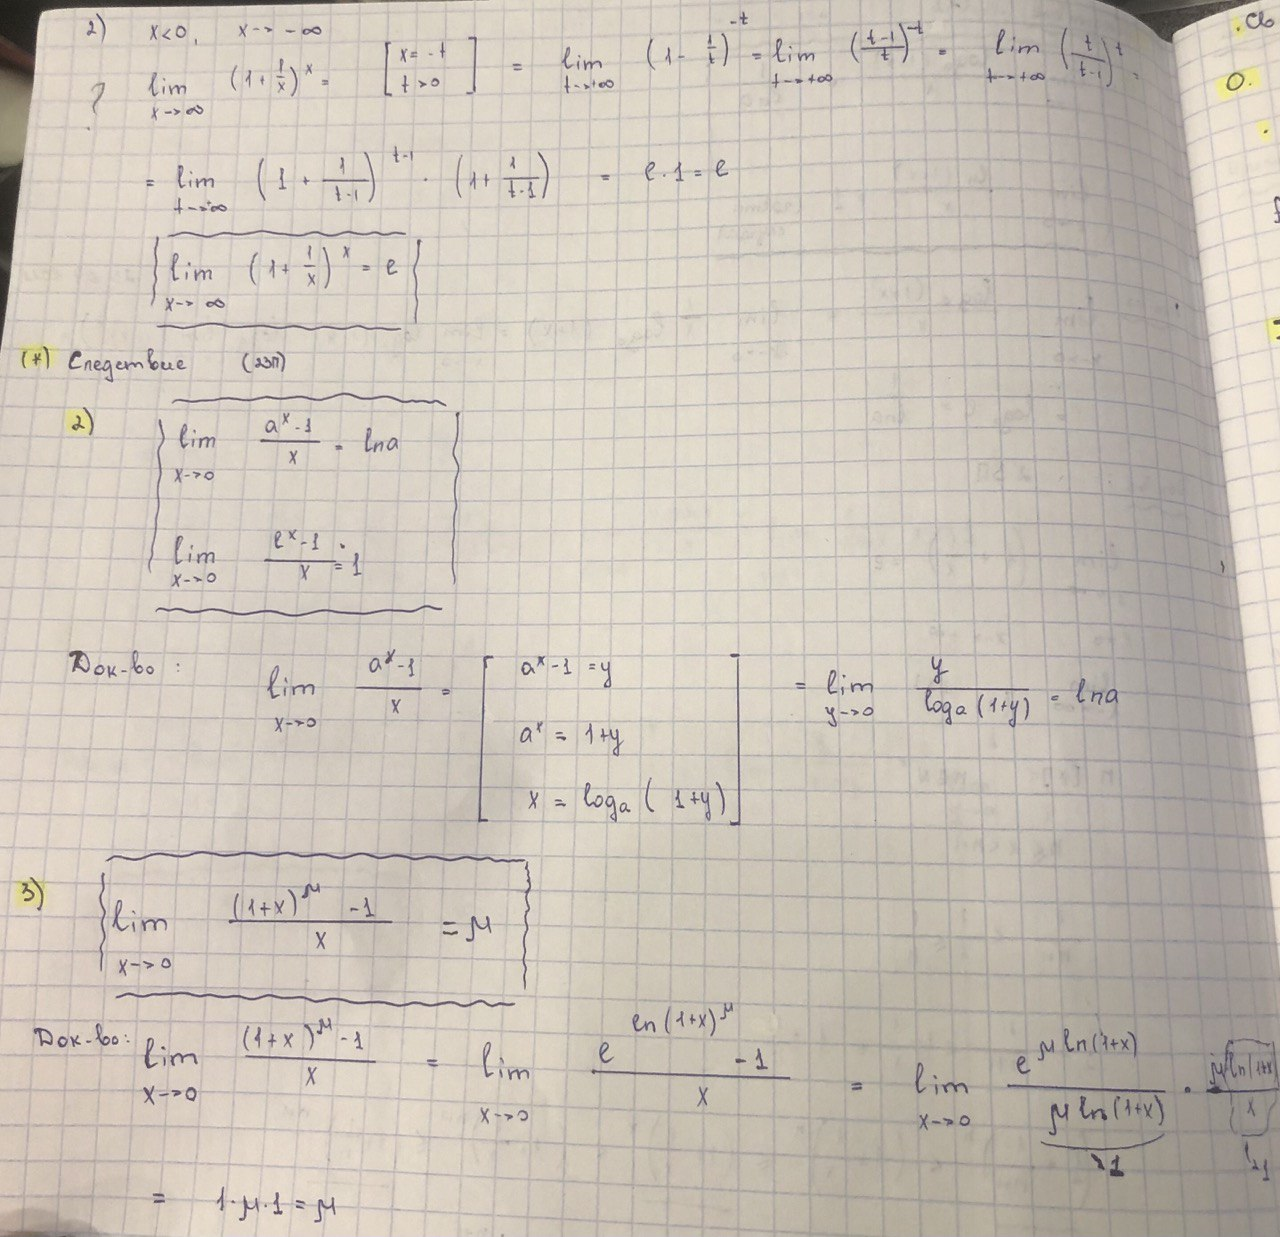 2) x<0, x→-∞
? lim x→∞ (1+1/x)^x = [x=-t t>0] = lim t→+∞ (1-1/t)^-t = lim t→+∞ ((t-1)/t)^-t = lim t→+∞ (t/(t-1))^t =
= lim t→∞ (1+1/(t-1))^t-1 · (1+1/(t-1)) = e·1=e
lim x→∞ (1+1/x)^x = e
(*) Следствие (2ЗП)
2) lim x→0 (a^x-1)/x = lna
lim x→0 (e^x-1)/x = 1
Док-во: lim x→0 (a^x-1)/x = [a^x-1=y a^x=1+y x=log_a(1+y)] = lim y→0 y/log_a(1+y) = lna
3) lim x→0 ((1+x)^μ-1)/x = μ
Док-во: lim x→0 ((1+x)^μ-1)/x = lim x→0 (e^ln(1+x)^μ-1)/x = lim x→0 e^μln(1+x)/μln(1+x) · μln(1+x)/x
→1 →1
= 1·μ·1=μ
Св
0.